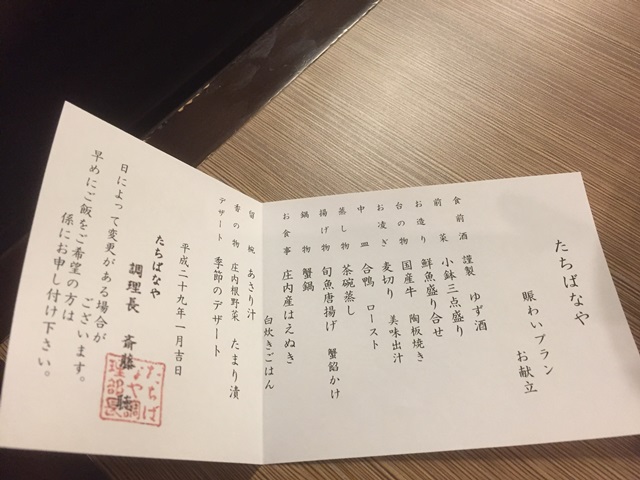 たちばなや
賑わいプラン
お献立
食前酒 謹製 ゆず酒
前菜 小鉢三点盛り
お造り 鮮魚盛り合せ
台の物 国産牛 陶板焼き
お凌ぎ 麦切り 美味出汁
中皿 合鴨 ロースト
蒸し物 茶碗蒸し
揚げ物 旬魚唐揚げ 蟹餡かけ
鍋物 蟹鍋
お食事 庄内産はえぬき
白炊きごはん
留椀 あさり汁
香の物 庄内根野菜 たまり漬
デザート 季節のデザート
平成二十九年一月吉日
たちばなや
調理長 斎藤 聡
日によって変更がある場合が
ございます。
早めにご飯をご希望の方は
係にお申し付け下さい。
たちば
なや調
理部長